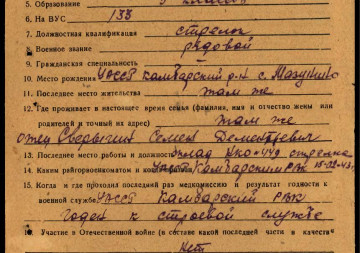 5. Образование 7 классов
6. На ВУС 133
7. Должностная квалификация стрелок
8. Военное звание рядовой
9. Гражданская специальность
10. Место рождения УАССР Камбарский р-н с. Мазунино
11. Последнее место жительства там же
12. Где проживает в настоящее время семья (фамилия, имя и отчество жены или
родителей и точный адрес) там же
отец Семен Дементьевич
13. Последнее место работы и должность склад НКО №449 стрелка
14. Каким райгорвоенкоматом и когда Камбарским РВК
15. Когда и где проходил последний раз медкомиссию и результат годности к
военной службе УАССР Камбарский РВК
годен к строевой службе
16. Участие в Отечественной войне (в составе какой последней части и качестве)
нет